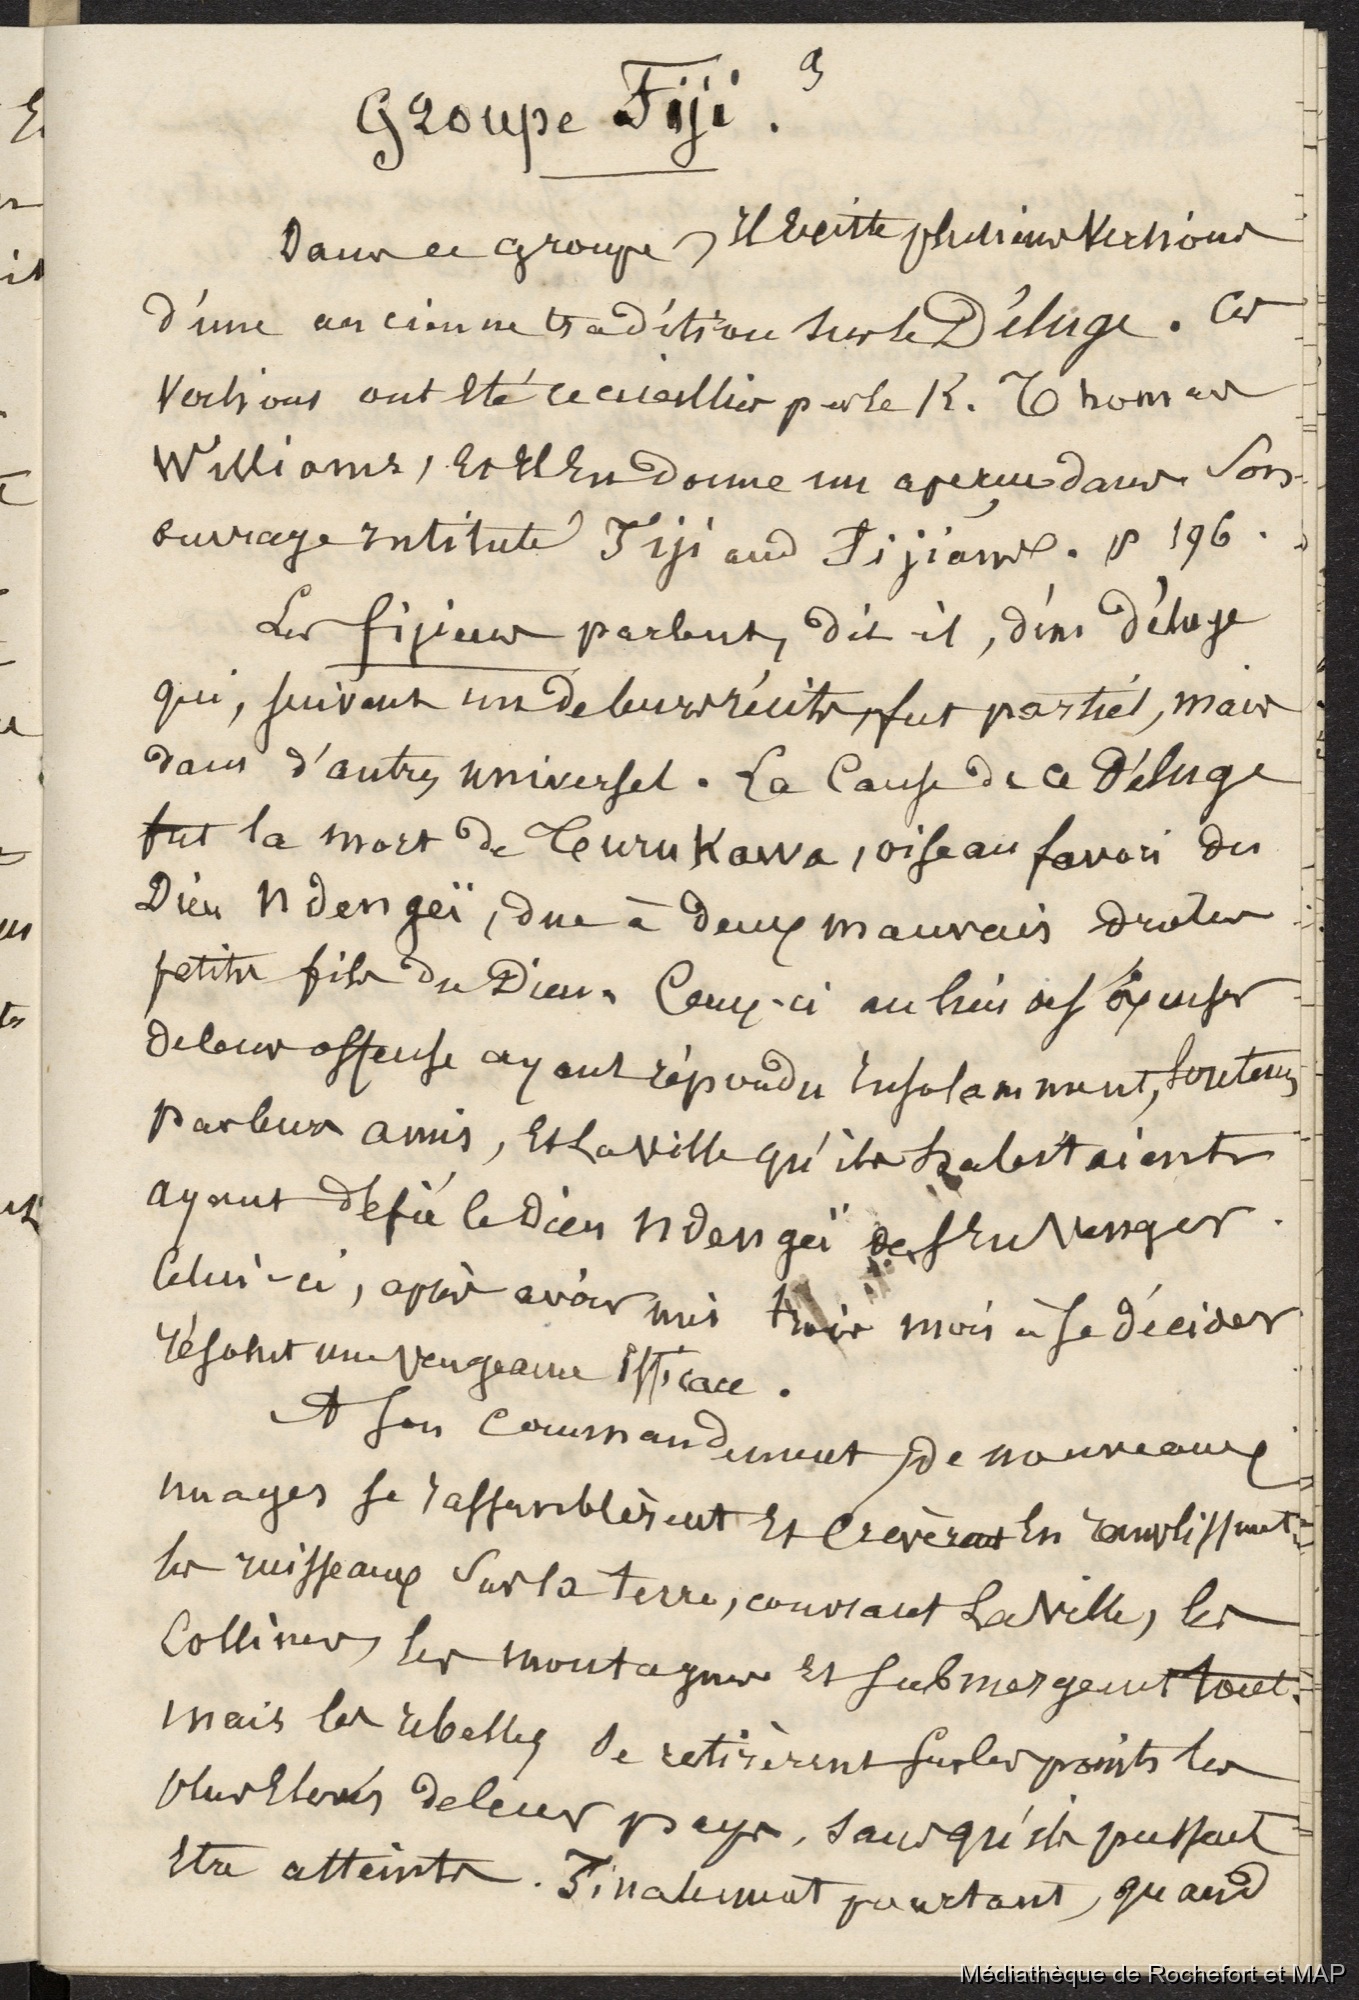 Groupe Fiji. a
Dans ce groupe, Il Existe plusieurs Versions
d'une ancienne tradition sur le Déluge. Ces
Versions ont Eté recueillies par le R. Thomas
Williams, Et Il En donne un apercu dans son
ouvrage intitulé Fiji and Fijians. p 196.
Les fijiens parlent, dit-il, d'un Déluge
qui, suivant un de leurs récits, fut partiel, mais
dans d'autres universel. La Cause de ce Déluge
fut la mort de Teurukawa, oiseau favori du
Dieu Ndengeï, due à deux mauvais droles
petits fils du Dieu. Ceux-ci au lieu de s'éxcuser
de leur offense ayant répondu Insolemment, soutenus
par leurs amis, Et La Ville qu'ils habitaient
ayant défié le Dieu Ndengeï de s'En Venger.
Celui-ci, après avoir mis trois mois à se décider
résolut une Vengeance Efficace.
A son Commandement, de nouveaux
nuages se rassemblèrent Et Crevèrent En remplissant
les ruisseaux sur la terre, couvrant La Ville, les
Collines, les montagnes Et submergeant tout.
mais les rebelles se retirèrent sur les points les
plus Elevés de leur pays, sans qu'ils pussent
Etre atteints. Finalement pourtant, quand
Médiathèque de Rochefort et MAP